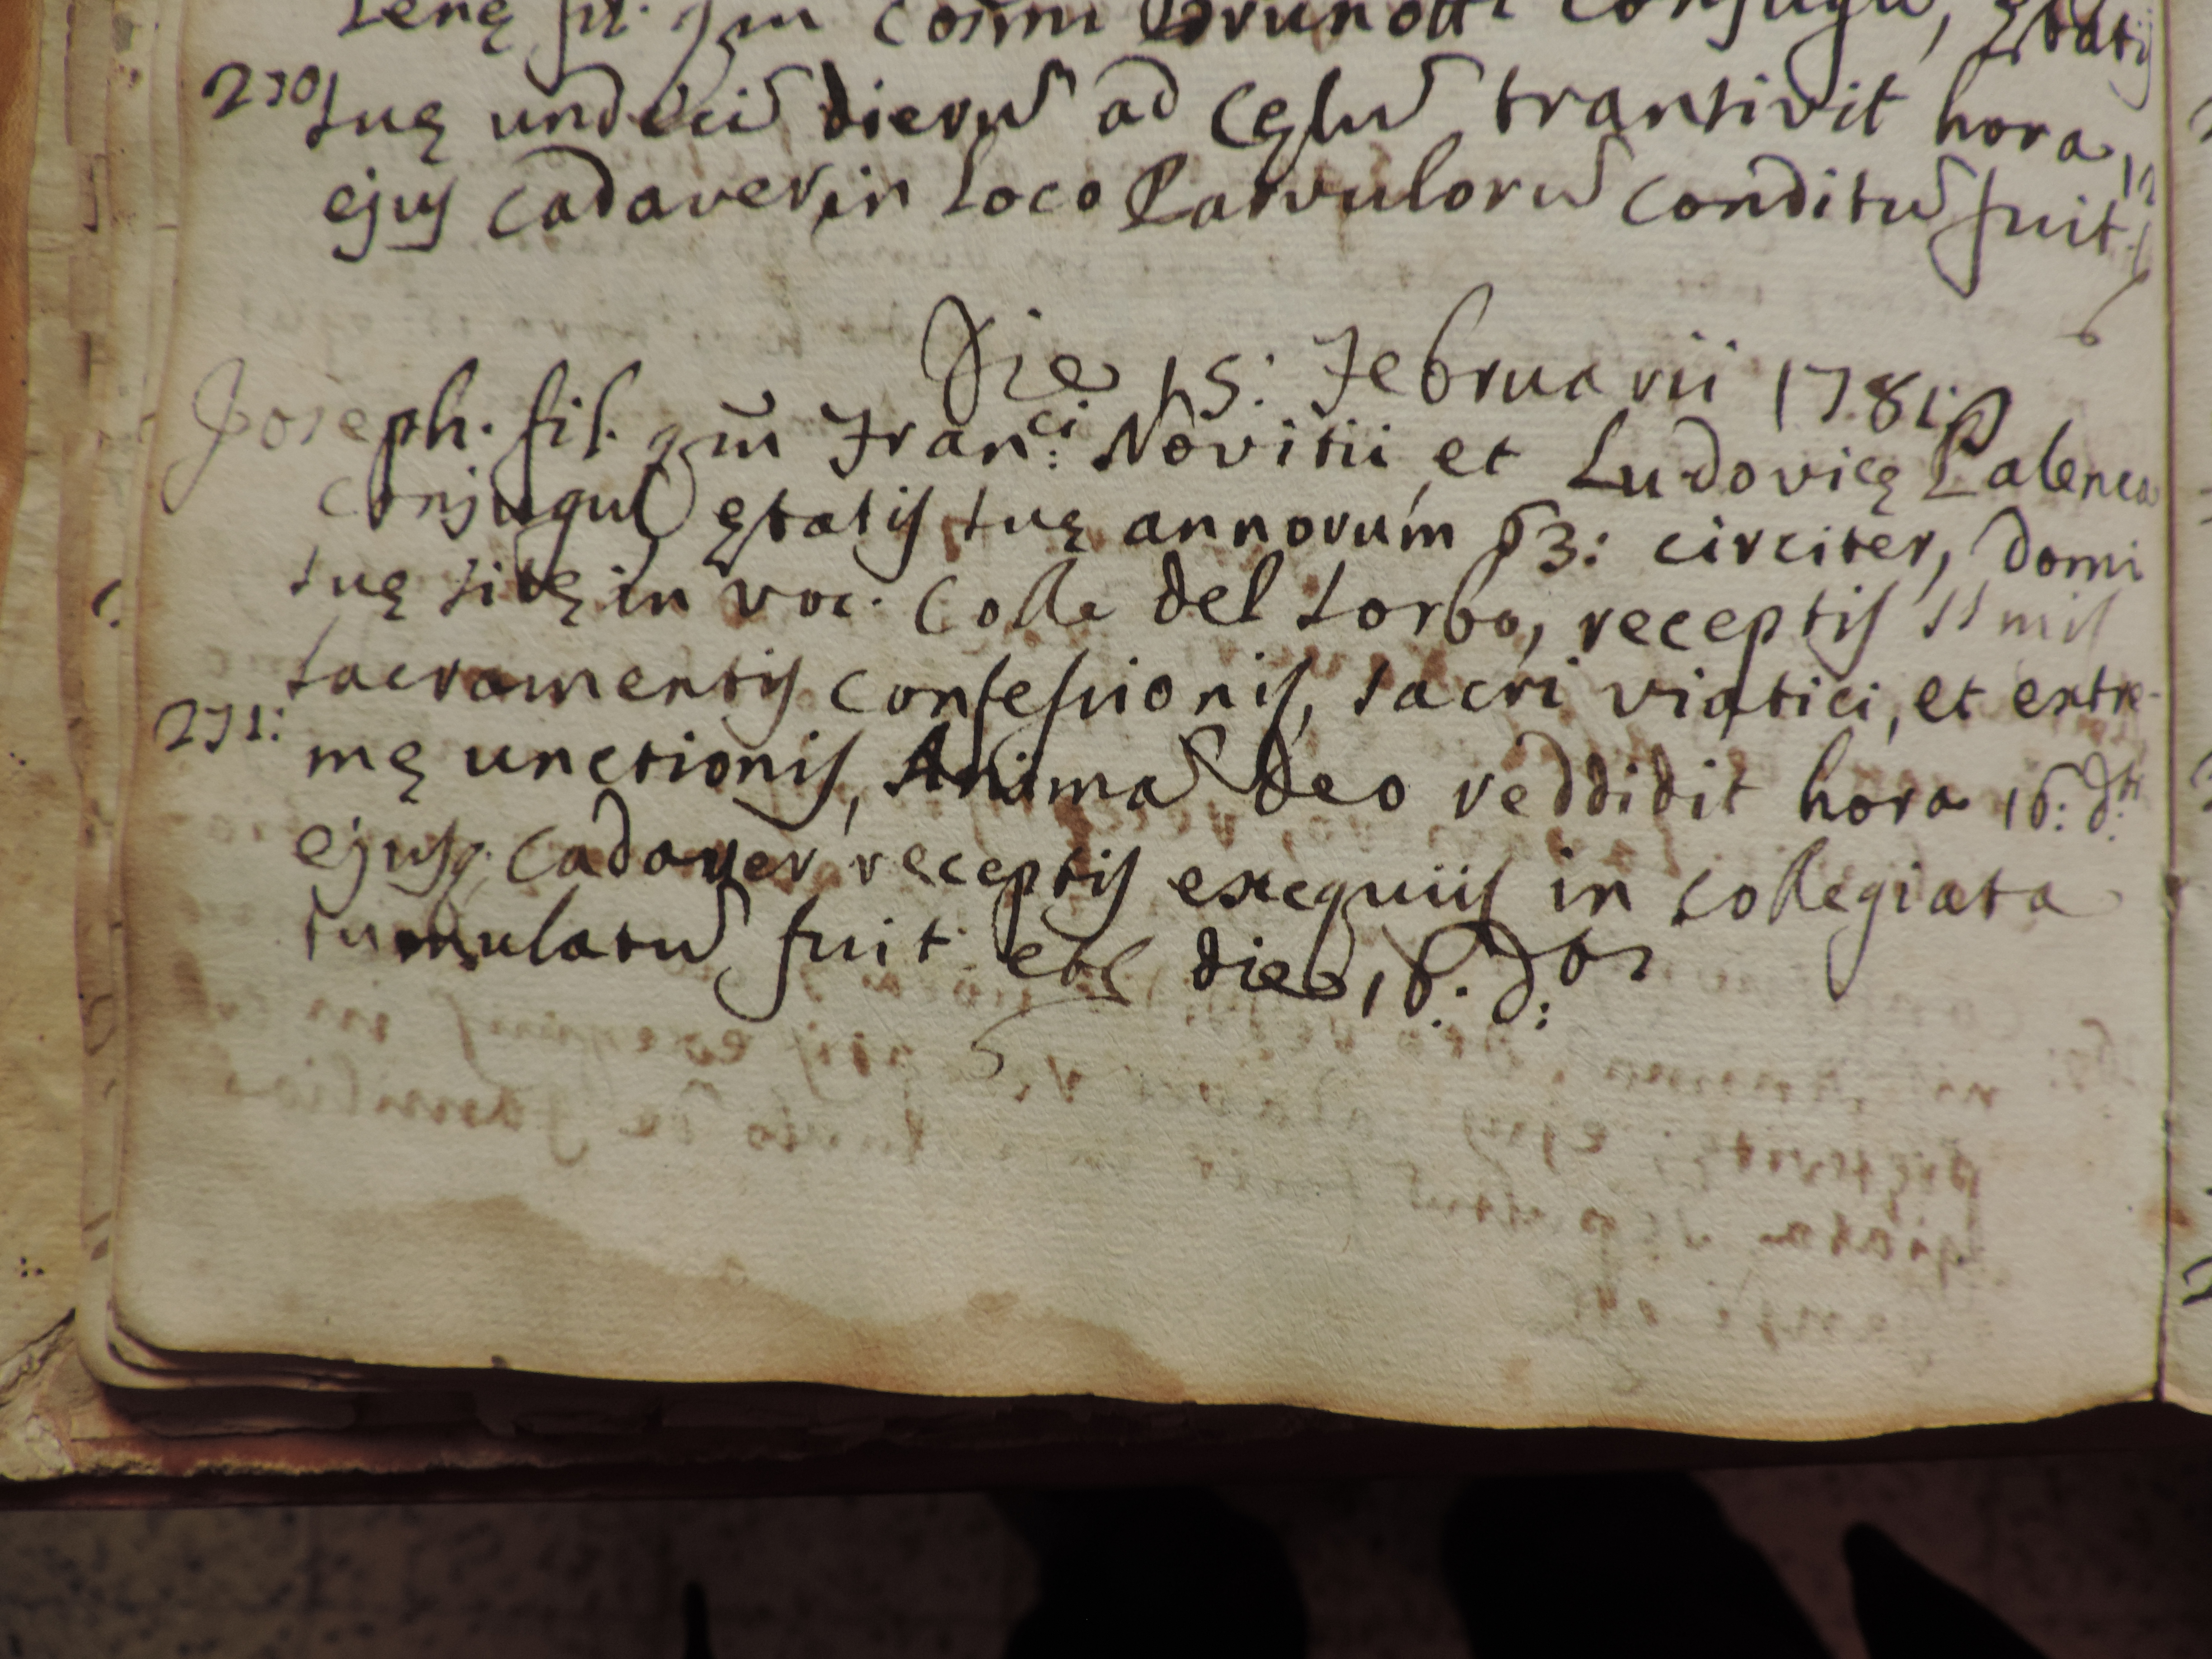 Lenę fil. qm Cosmi Brunotti Conjugu, ętatis
230 suę undeciū dierū ad Cęlū transivit hora 12
ejus Cadaver in Loco Parvulorū Conditū fuit.
Die 15: Februarii 1781:
Joseph. fil. qm Fran:ci Novitii et Ludovicę Palenca
Conjugū ętatis suę annorum 63: circiter, domi
suę sitę in voc. Colle del Sorbo, receptis SSmis
Sacramentis Confessionis, sacri viatici, et extre-
231: mę unctionis, Animā Deo reddidit hora 16: d:
ejusq; Cadaver receptis exequiis in Collegiata
tumulatū fuit die 16. d: